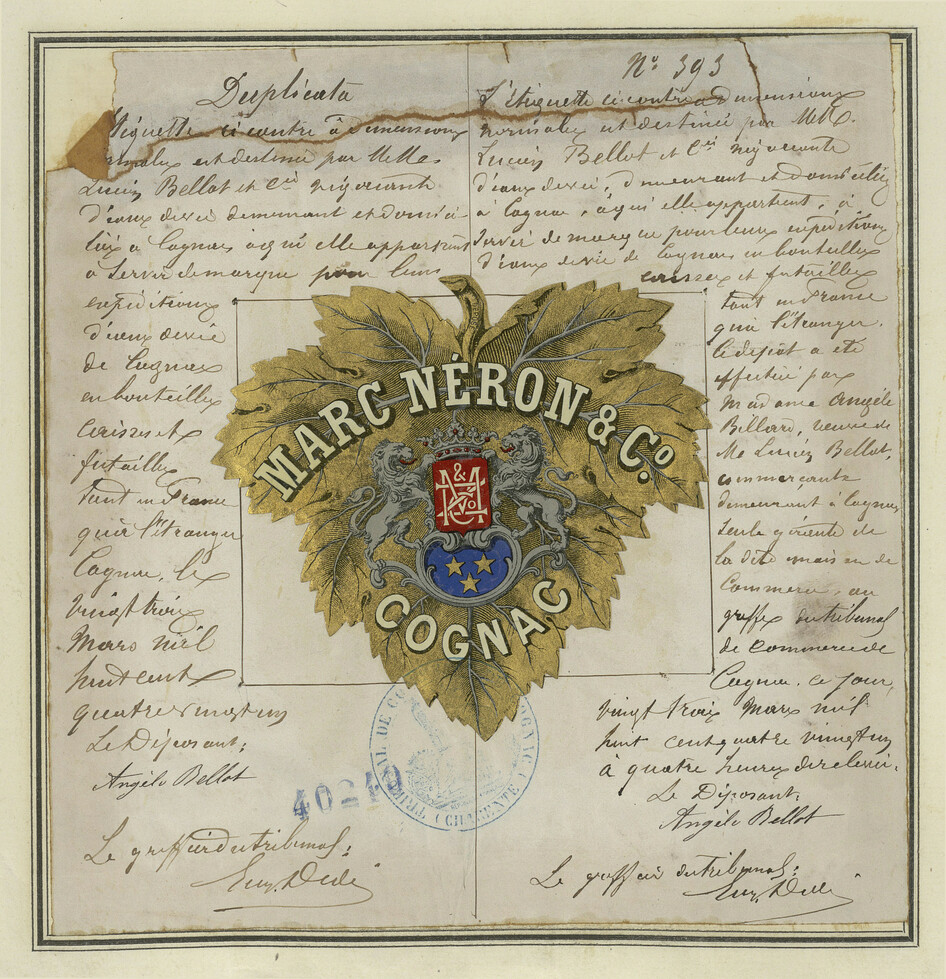 Duplicata
Vignette ci contre à dimensions
normales est destinée par MMes
Lucien Bellot et Cie négociants
d'eaux de vie demeurant et domici-
liés à Cognac à qui elle appartient
à servir de marque pour leurs
expéditions
d'eaux de vie
de Cognac
en bouteilles
caisses et
futailles
tant en France
qu'à l'étranger
Cognac, le
vingt trois
Mars mil
huit cent
quatre vingt un
Le Déposant;
Angèle Bellot
Le greffier du tribunal;
No 393
L'étiquette ci contre à dimensions
normales est destinée par MM.
Lucien Bellot et Cie négociants
d'eaux de vie, demeurant et domiciliés
à Cognac, à qui elle appartient, à
servir de marque pour leurs expéditions
d'eaux de vie de Cognac en bouteilles
caisses et futailles
tant en France
qu'à l'étranger.
Le dépôt a été
effectué par
Madame Angèle
Billard, veuve de
Mr Lucien Bellot,
commerçante
demeurant à Cognac,
seule gérante de
la dite maison de
Commerce, au
greffe du tribunal
de commerce de
Cognac, ce jour,
vingt trois Mars mil
huit cent quatre vingt un
à quatre heures de relevée.
Le Déposant;
Angèle Bellot
Le greffier du tribunal;
MARC NÉRON & Co.
COGNAC
TRIBUNAL DE CO COGNAC (CHARENTE)